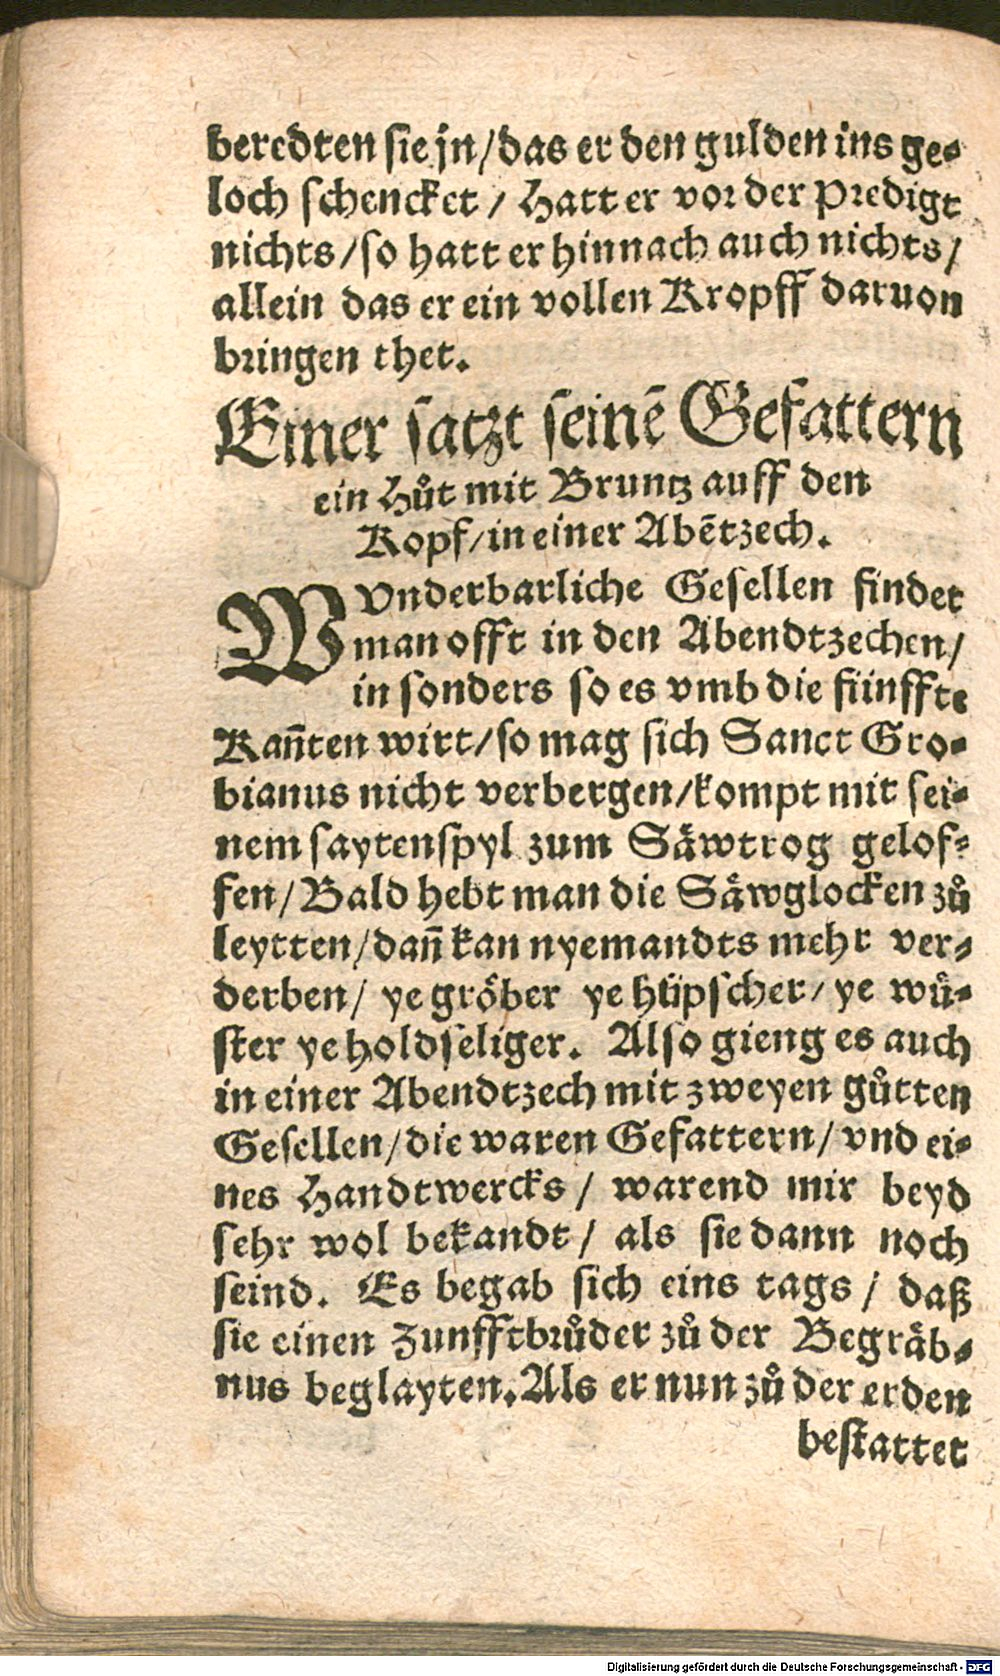 beredten sie jn/das er den gulden ins ge-
loch schencket / Hatt er vor der Predigt
nichts/so hatt er hinnach auch nichts/
allein das er ein vollen Kropff daruon
bringen thet.
Einer satzt seinē Gefattern
ein Hůt mit Bruntz auff den
Kopf/in einer Abētzech.
WVnderbarliche Gesellen findet
man offt in den Abendtzechen/
in sonders so es vmb die fünffte
Kan̄ten wirt/so mag sich Sanct Gro-
bianus nicht verbergen/kompt mit sei-
nem saytenspyl zum Säwtrog gelof-
fen/Bald hebt man die Säwglocken zů
leytten/dan̄ kan nyemandts mehr ver-
derben/ ye gröber ye hüpscher/ye wü-
ster ye holdseliger. Also gieng es auch
in einer Abendtzech mit zweyen gůtten
Gesellen/die waren Gefattern/vnd ei-
nes Handtwercks / warend mir beyd
sehr wol bekandt/ als sie dann noch
seind. Es begab sich eins tags / daß
sie einen Zunfftbrůder zů der Begräb-
nus beglayten. Als er nun zů der erden
bestattet
Digitalisierung gefördert durch die Deutsche Forschungsgemeinschaft - DFG